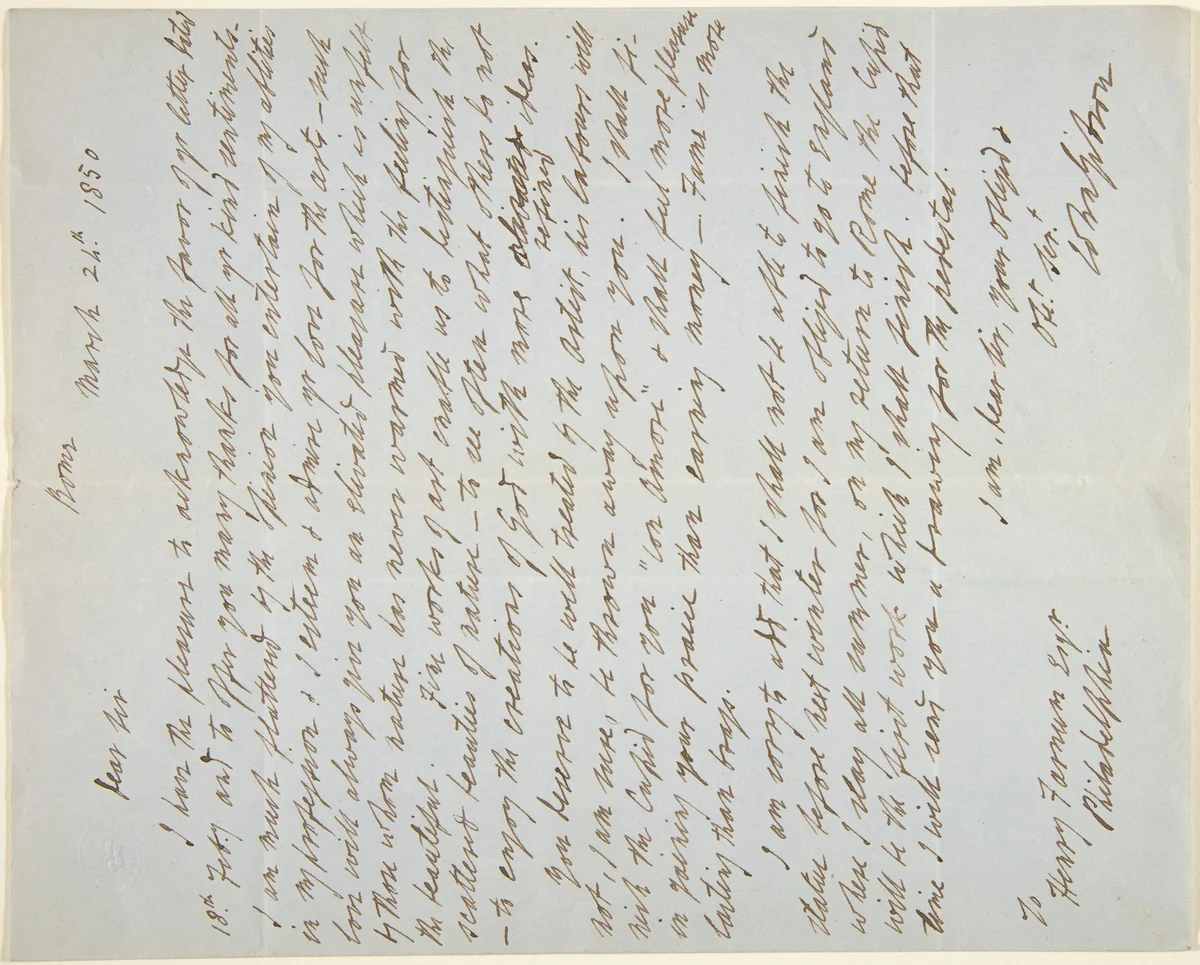 Rome March 24th 1850
Dear Sir
I have the pleasure to acknowledge the favor of yr letter dated
18th Feby and to offer you many thanks for all yr kind sentiments.
I am much flattered by the opinion you entertain of my abilities
in my profession & I esteem & admire yr love for the arts – such
love will always give you an elivated pleasure which is unfelt
by those whom nature has never warmed with the feeling for
the beautiful. Fine works of art enable us to distinguish the
scattered beauties of nature – to see often what others do not
– to enjoy the creations of God with more refined ideas.
You deserve to be well treated by the Artist, his labours will
not, I am sure, be thrown away upon you. I shall fi-
nish the Cupid for you "con Amore" & shall feel more pleasure
in gaining your praise than earning money – Fame is more
lasting than brass.
I am sorry to add that I shall not be able to finish the
statue before next winter for I am obliged to go to England
where I stay all summer, on my return to Rome the Cupid
will be the first work which I shall finish. before that
time I will send you a drawing for the pedestal.
I am, dear Sir, your obliged &
Obt. Sert.
John Gibson
To
Henry Farnum Esqr
Philadelphia